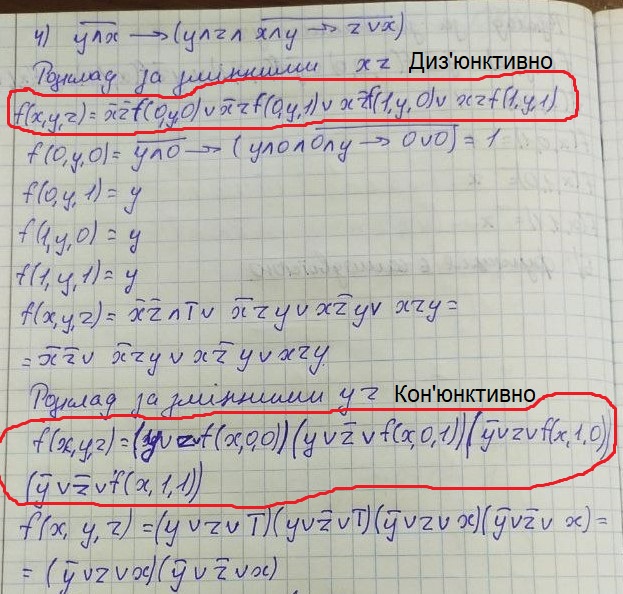 4) y̅∧̅x̅ → (y∧z∧ x̅∧̅y̅ ̅→̅ ̅z̅∨̅x̅)
Розклад за змінними xz Диз'юнктивно
f(x,y,z)= x̅z̅f(0,y,0)∨x̅zf(0,y,1)∨xz̅f(1,y,0)∨ xzf(1,y,1)
f(0,y,0)= y̅∧̅0̅ → (y∧0∧0̅∧̅y̅ ̅→̅ ̅0̅∨̅0̅)=1
f(0,y,1)= y
f(1,y,0)= y
f(1,y,1)= y
f(x,y,z)= x̅z̅∧1∨ x̅zy∨xz̅y∨ xzy=
= x̅z̅∨ x̅zy∨xz̅y∨xzy
Розклад за змінними yz Кон'юнктивно
f(x,y,z)=(y∨z∨f(x,0,0))(y∨z̅∨f(x,0,1))(y̅∨z∨f(x,1,0))
(y̅∨z̅∨f(x,1,1))
f(x,y,z)=(y∨z∨1)(y∨z̅∨1)(y̅∨z∨x)(y̅∨z̅∨x)=
= (y̅∨z∨x)(y̅∨z̅∨x)